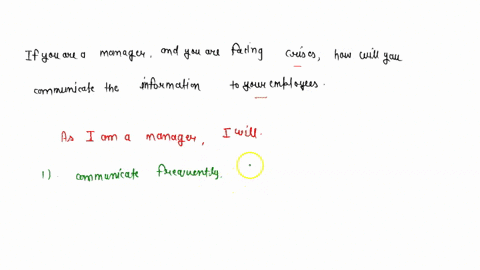 If you are a manager, and you are facing crises, how will you
communicate the information to your employees.
As I am a manager, I will.
1). communicate frequently.